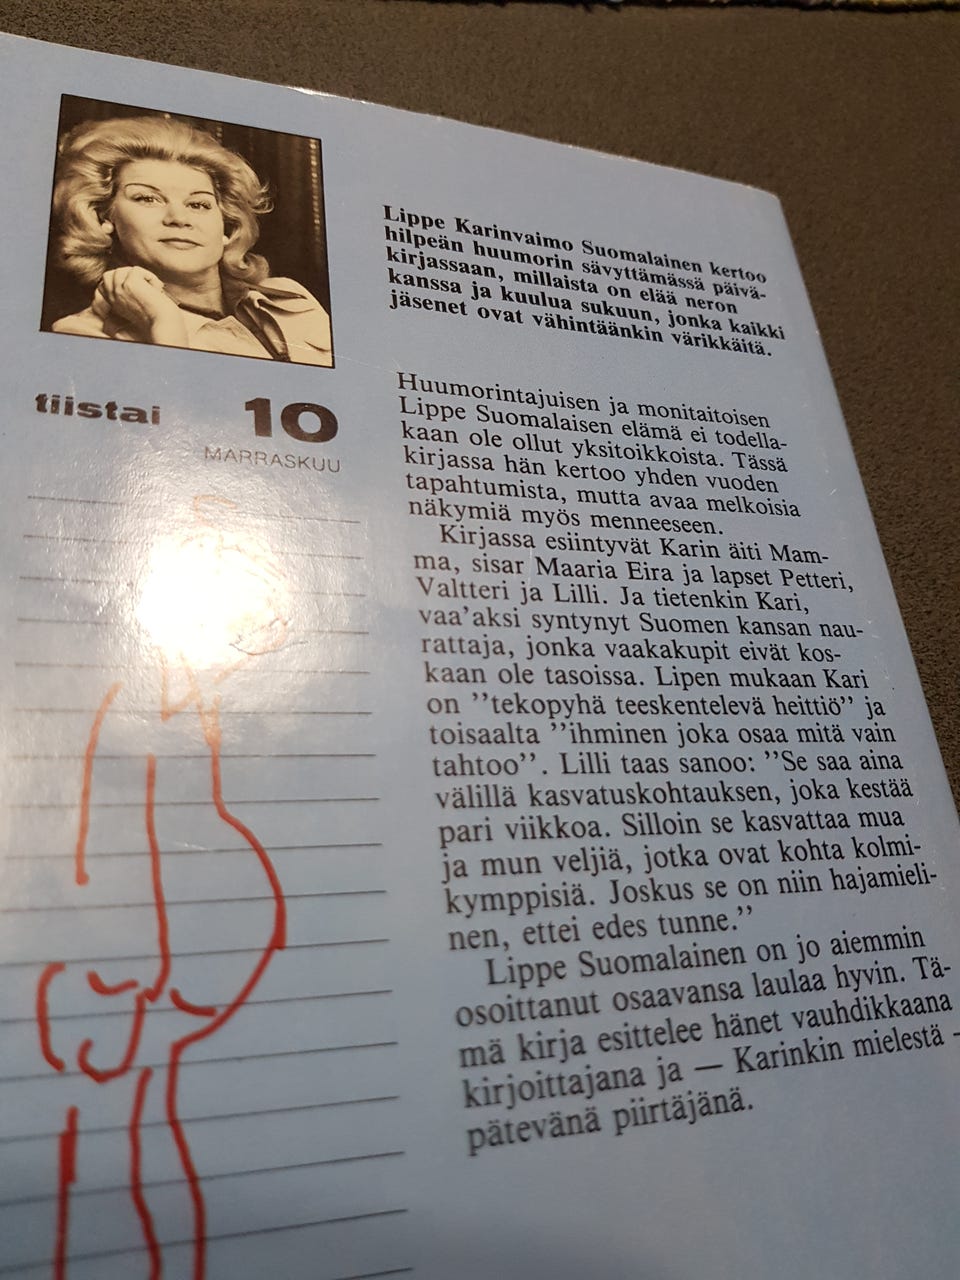 Lippe Karinvaimo Suomalainen kertoo
hilpeän huumorin sävyttämässä päivä-
kirjassaan, millaista on elää neron
kanssa ja kuulua sukuun, jonka kaikki
jäsenet ovat vähintäänkin värikkäitä.
tiistai 10
MARRASKUU
Huumorintajuisen ja monitaitoisen
Lippe Suomalaisen elämä ei todella-
kaan ole ollut yksitoikkoista. Tässä
kirjassa hän kertoo yhden vuoden
tapahtumista, mutta avaa melkoisia
näkymiä myös menneeseen.
Kirjassa esiintyvät Karin äiti Mam-
ma, sisar Maaria Eira ja lapset Petteri,
Valtteri ja Lilli. Ja tietenkin Kari,
vaa'aksi syntynyt Suomen kansan nau-
rattaja, jonka vaakakupit eivät kos-
kaan ole tasoissa. Lipen mukaan Kari
on ”tekopyhä teeskentelevä heittiö” ja
toisaalta ”ihminen joka osaa mitä vain
tahtoo”. Lilli taas sanoo: ”Se saa aina
välillä kasvatuskohtauksen, joka kestää
pari viikkoa. Silloin se kasvattaa mua
ja mun veljiä, jotka ovat kohta kolmi-
kymppisiä. Joskus se on niin hajamieli-
nen, ettei edes tunne.”
Lippe Suomalainen on jo aiemmin
osoittanut osaavansa laulaa hyvin. Tä-
mä kirja esittelee hänet vauhdikkaana
kirjoittajana ja — Karinkin mielestä —
pätevänä piirtäjänä.